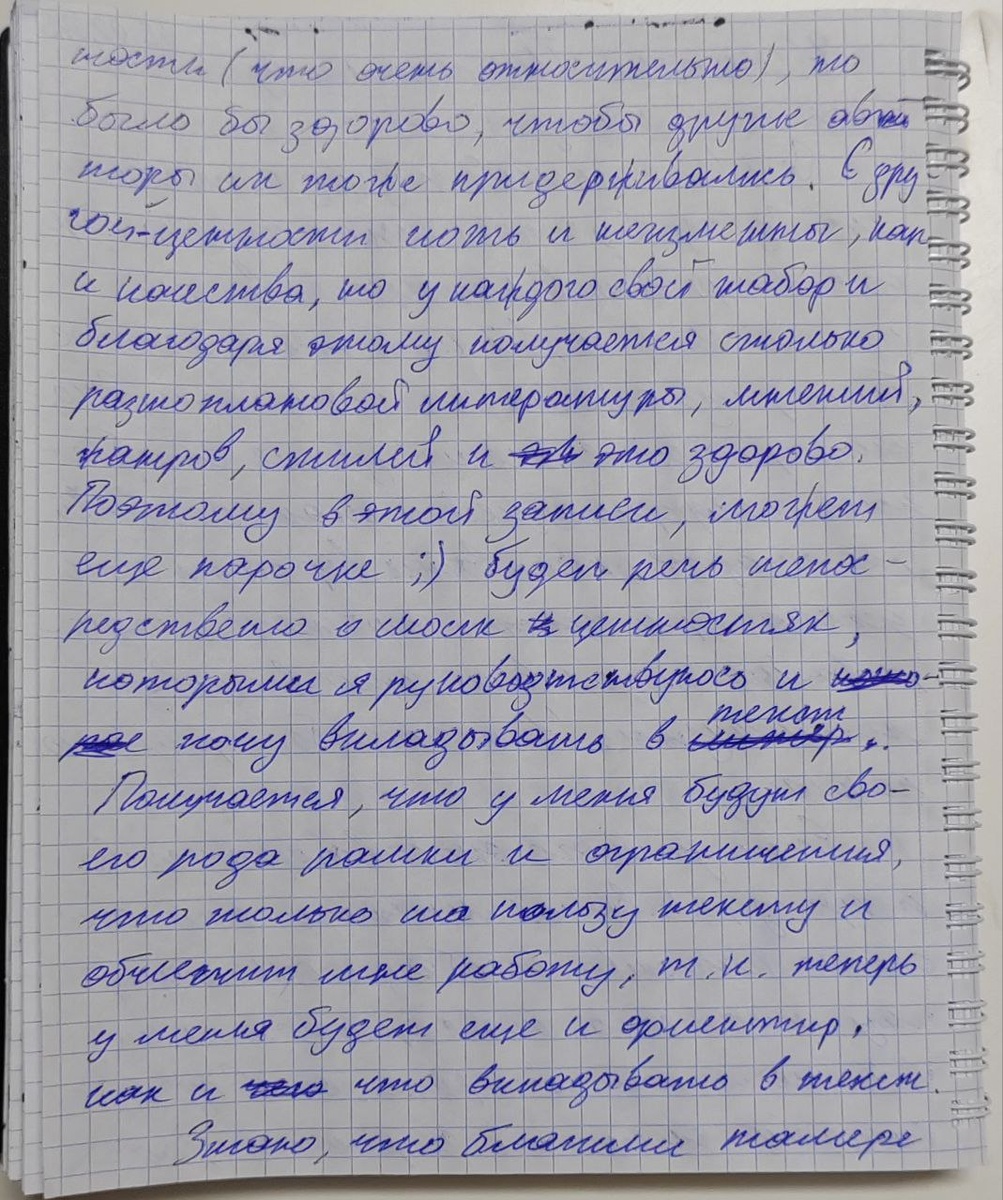 ности (что очень относительно), то
было бы здорово, чтобы другие ав
торы их тоже придерживались. С дру
гой-ценности хоть и неизменны, как
и качества, но у каждого свой набор и
благодаря этому получается столько
разноплановой литературы, мнений,
жанров, стилей и это здорово.
Поэтому в этой записи, может
еще парочке ;) будет речь непос-
редствено о моих ценностях,
которыми я руководствуюсь и
хочу вкладывать в текст..
Получается, что у меня будут сво-
его рода рамки и ограничения,
что только на пользу тексту и
облегчит мне работу, т.к. теперь
у меня будет еще и ориентир,
как и что вкладывать в текст.
Знаю, что благими намере